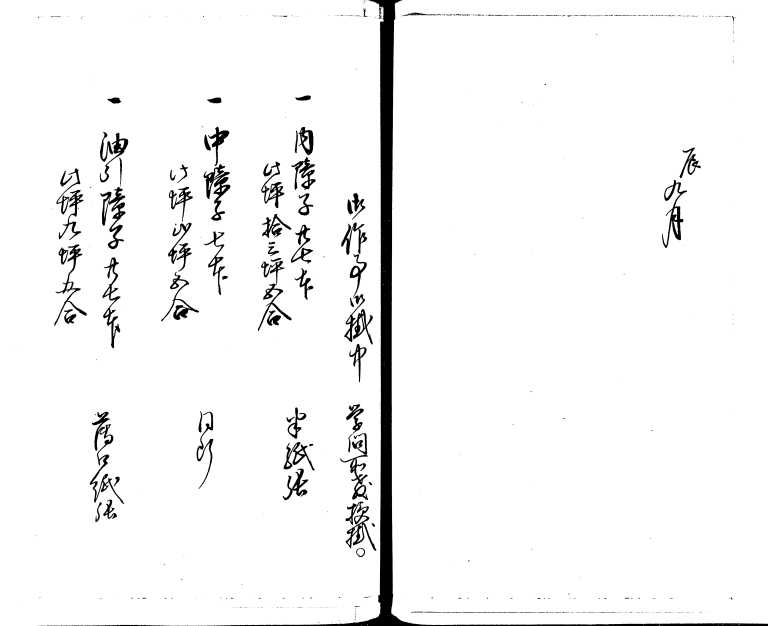 辰九月
御作事御掛中 学問所
一 内障子廿七本 半紙張
此坪拾三坪五合
一 中障子七本 同断
此坪 坪五合
一 油引障子廿七本 紙張
此坪九坪五合